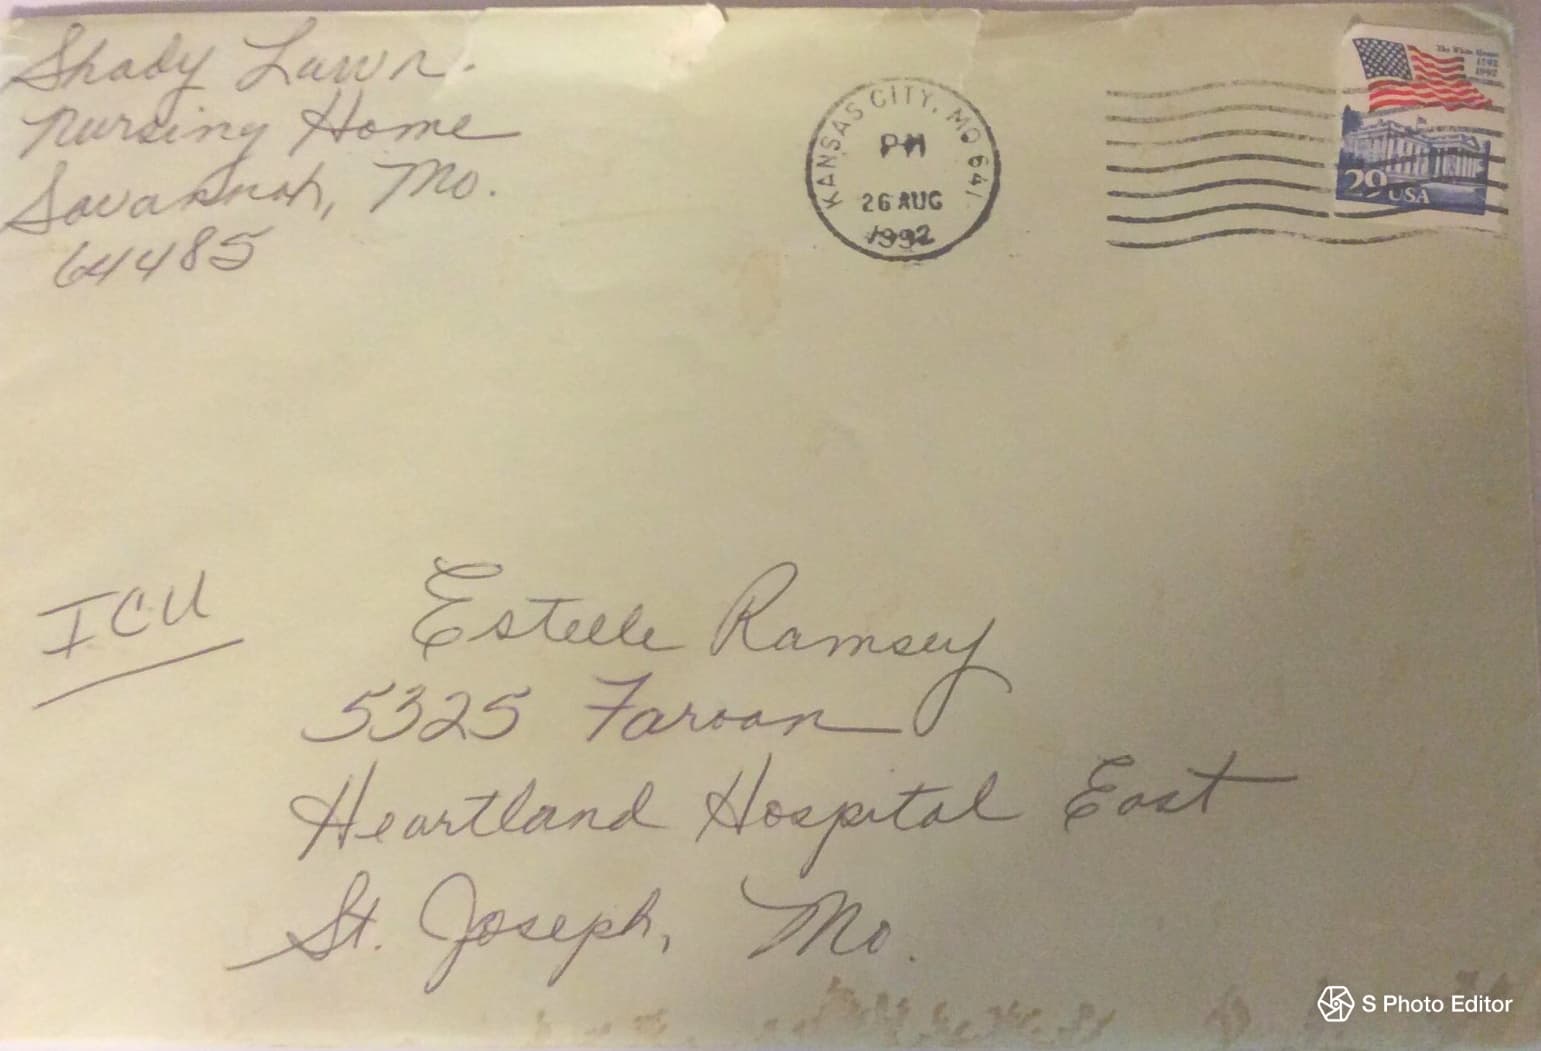 Shady Lawn.
Nursing Home
Savannah, Mo.
64485
KANSAS CITY, MO 641
PM
26 AUG
1992
The White House
1792
1992
29 USA
ICU
Estelle Ramsey
5325 Faroan
Heartland Hospital East
St. Joseph, Mo.
S Photo Editor